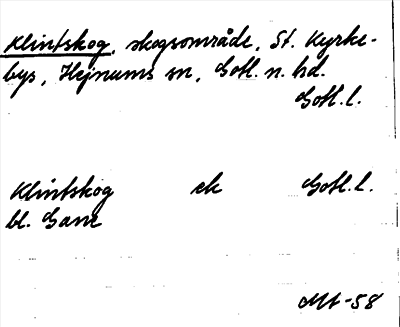 Klintskog, skogsområde, St. Kyrke-
bys, Hejnums sn, Gotl. n. hd.
Gotl. l.
Klintskog ek Gotl. l.
bl. Gane
Mt-58